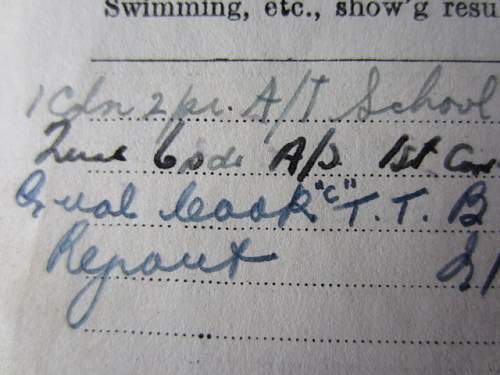 Swimming, etc., show'g resu
1 Cdn 2 pr. A/T School
6 pdr A/T 1st
Qual Cook "C" T. T. B
Report